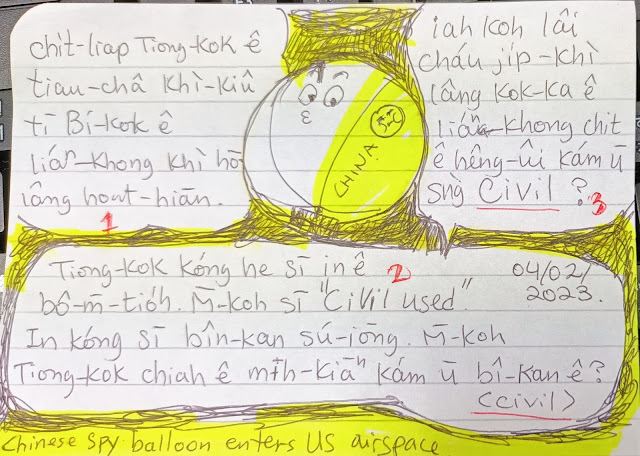 chı̍t-liap Tiong-kok ê
tiau-châ khì-kiû
tī Bí-kok ê
liáⁿ-khong khì hō͘
lâng hoat-hiān.
1
CHINA
iah koh lâi
cháu ji̍p-khì
lâng kok-ka ê
liáⁿ-khong chit
ê hêng-ûi kám ū
sǹg Civil ?
3
Tiong-kok kóng he sī in ê
2
04/02/
2023.
bô-m̄-tio̍h. M̄-koh sī "Civil used"
In kóng sī bîn-kan sú-iōng. M̄-koh
Tiong-kok chiah ê mı̍h-kiāⁿ kám ū bî-kan ê?
<civil>
Chinese spy balloon enters US airspace